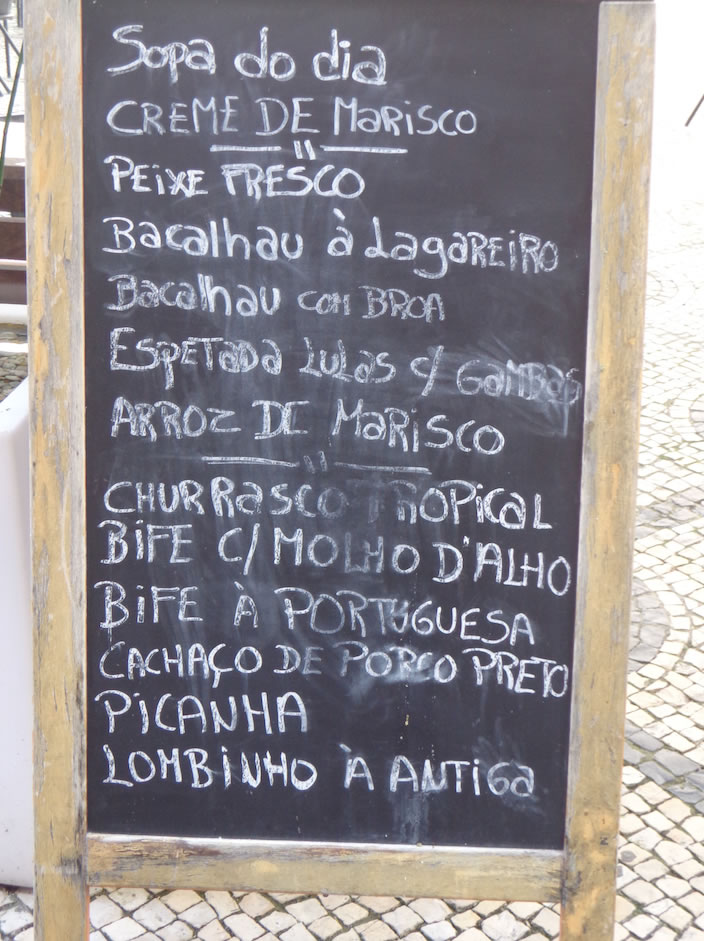 Sopa do dia
CREME DE MARISCO
PEIXE FRESCO
Bacalhau à LAGAREIRO
Bacalhau COM BROA
ESPETADA LULAS c/ GAMBAS
ARROZ DE MARISCO
CHURRASCO TROPICAL
BIFE C/ MOLHO D'ALHO
BIFE À PORTUGUESA
CACHAÇO DE PORCO PRETO
PICANHA
LOMBINHO À ANTIGA